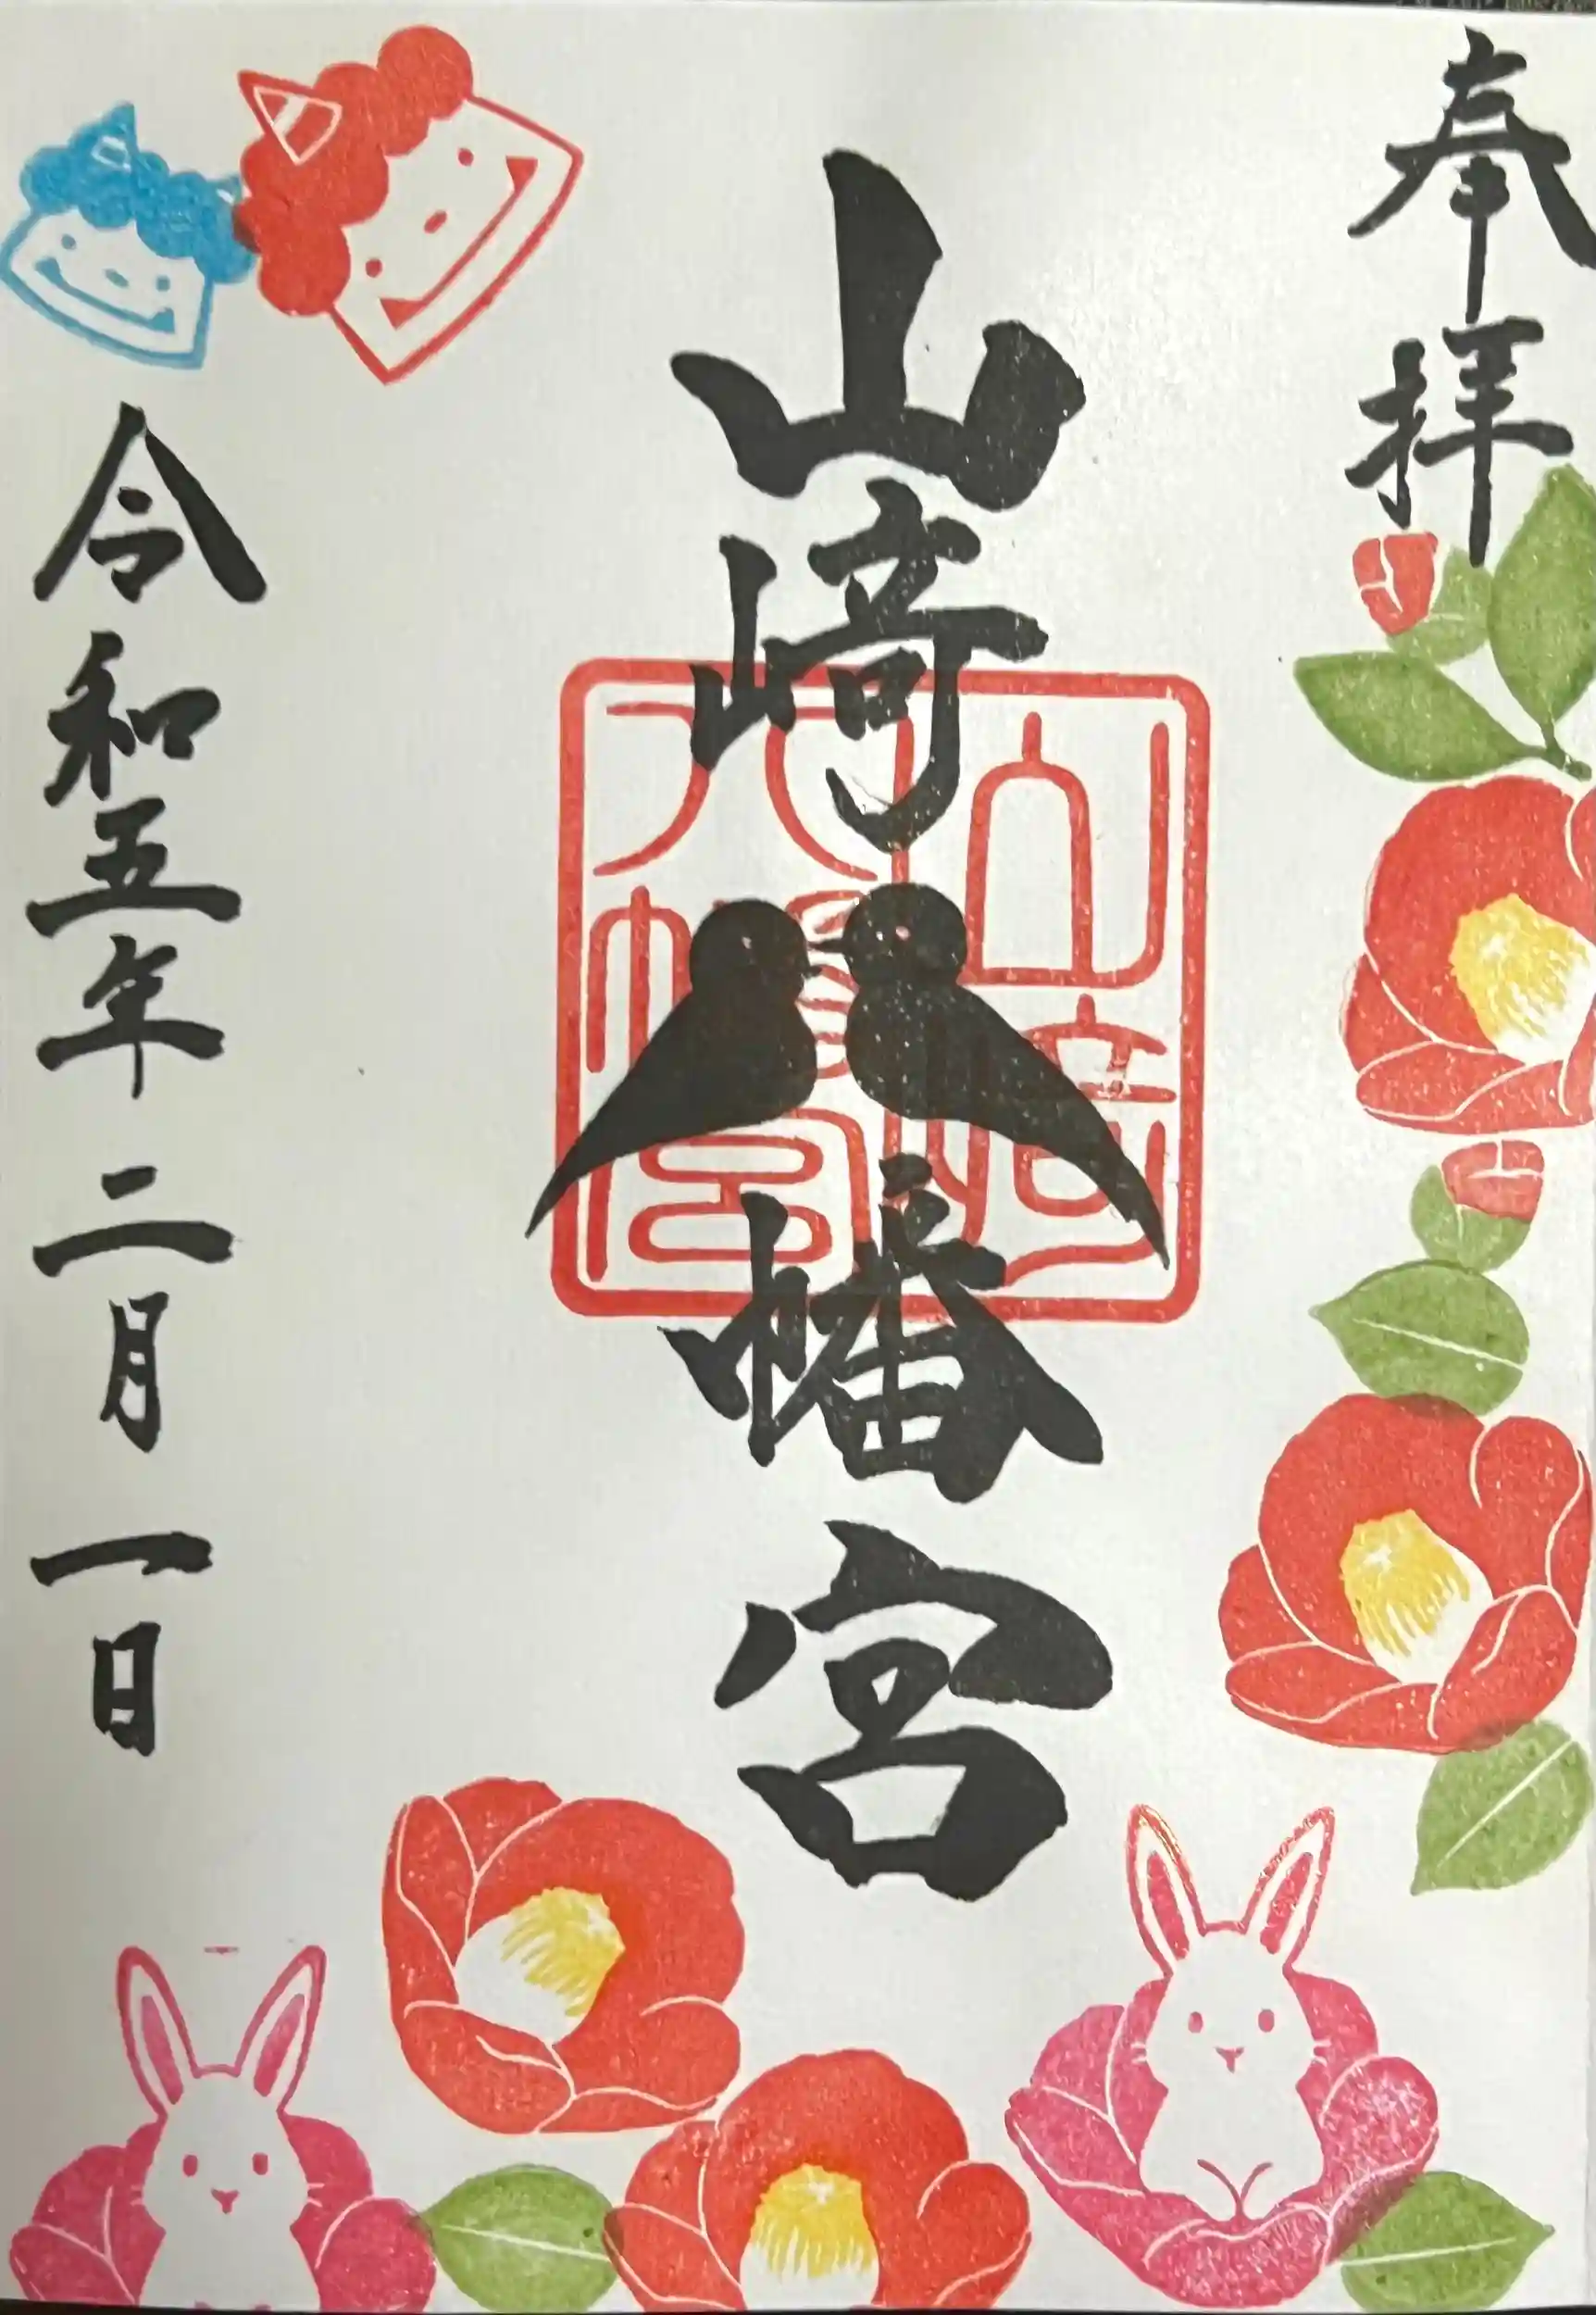 奉拝
山崎八幡宮
山崎八幡宮
令和五年二月一日